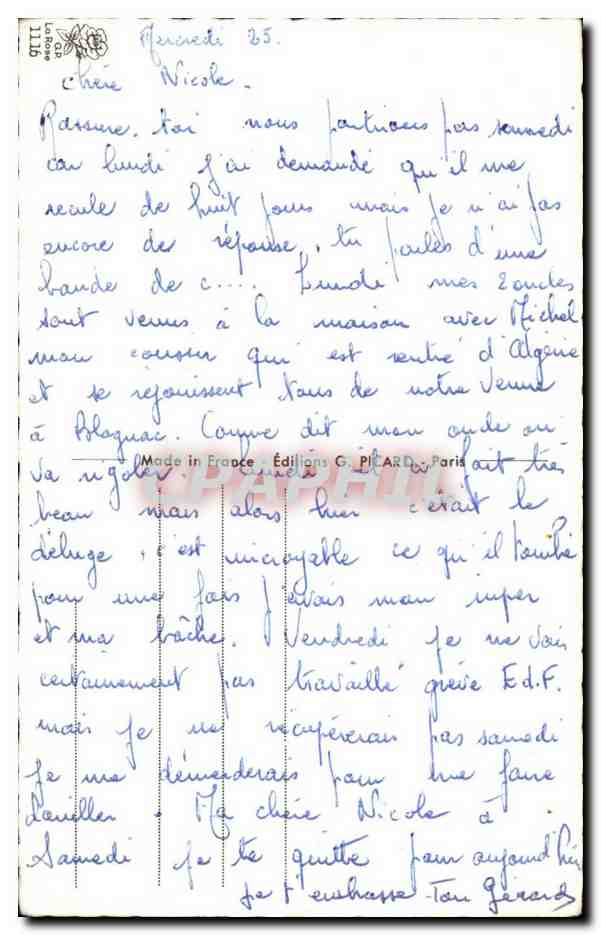 G.P.
La Rose
1116
Mercredi 25.
Chère Nicole.
Rassure-toi nous partirons pas samedi
car lundi j'ai demandé qu'il me
recule de huit jours mais je n'ai pas
encore de réponse. tu parles d'une
bande de c.... Lundi mes 2 oncles
sont venus à la maison avec Michel
mon cousin qui est rentré d'Algérie
et se rejouissent tous de notre venue
à Blagnac. Comme dit mon oncle on
va rigoler. Lundi il a fait très
Made in France - Éditions G. PICARD - Paris
CPAPHIL
beau mais alors hier c'était le
déluge, c'est incroyable ce qu'il tombé
pour une fois j'avais mon imper
et ma bâche. Vendredi je ne vais
certainement pas travaillé grève E.d.F.
mais je ne récupérerais pas samedi
je me démerderais pour me faire
. Ma chère Nicole à
Samedi je te quitte pour aujourd'hui
je t'embrasse Ton Gérard